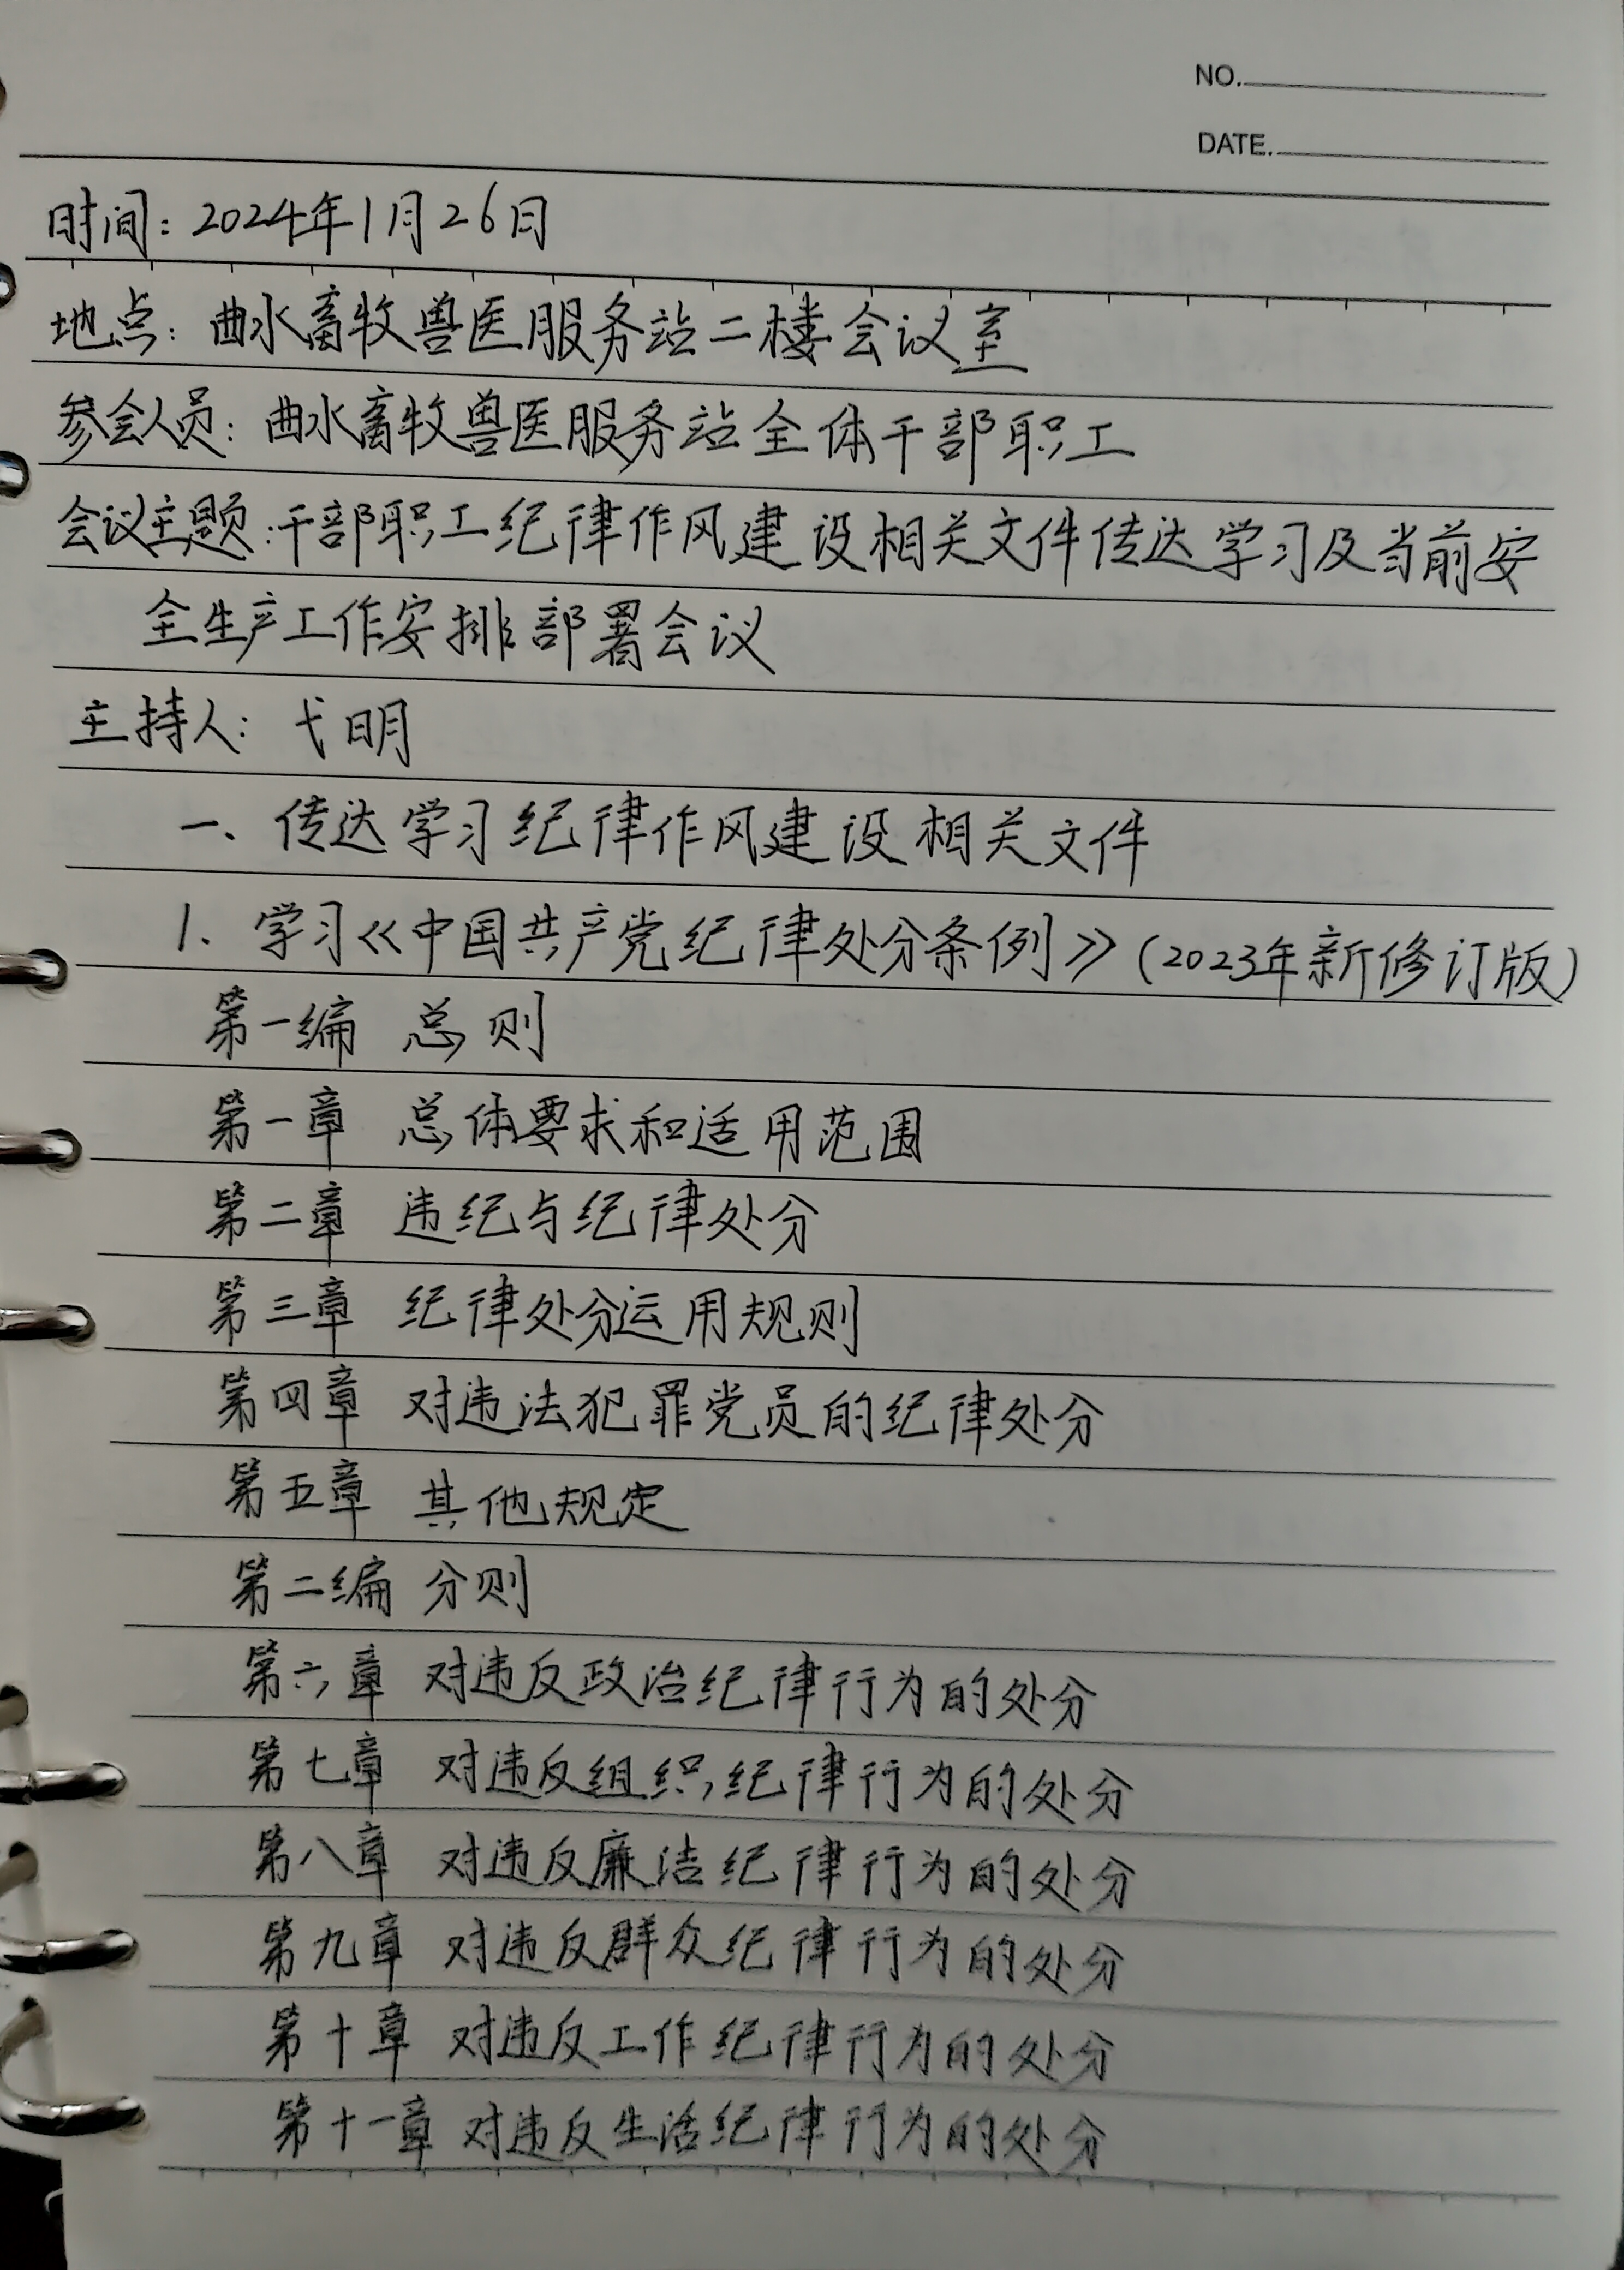 NO.
DATE.
时间：2024年1月26日
地点：曲水畜牧兽医服务站二楼会议室
参会人员：曲水畜牧兽医服务站全体干部职工
会议主题：干部职工纪律作风建设相关文件传达学习及当前安
全生产工作安排部署会议
主持人：弋明
一、传达学习纪律作风建设相关文件
1、学习《中国共产党纪律处分条例》（2023年新修订版）
第一编 总则
第一章 总体要求和适用范围
第二章 违纪与纪律处分
第三章 纪律处分运用规则
第四章 对违法犯罪党员的纪律处分
第五章 其他规定
第二编 分则
第六章 对违反政治纪律行为的处分
第七章 对违反组织纪律行为的处分
第八章 对违反廉洁纪律行为的处分
第九章 对违反群众纪律行为的处分
第十章 对违反工作纪律行为的处分
第十一章 对违反生活纪律行为的处分